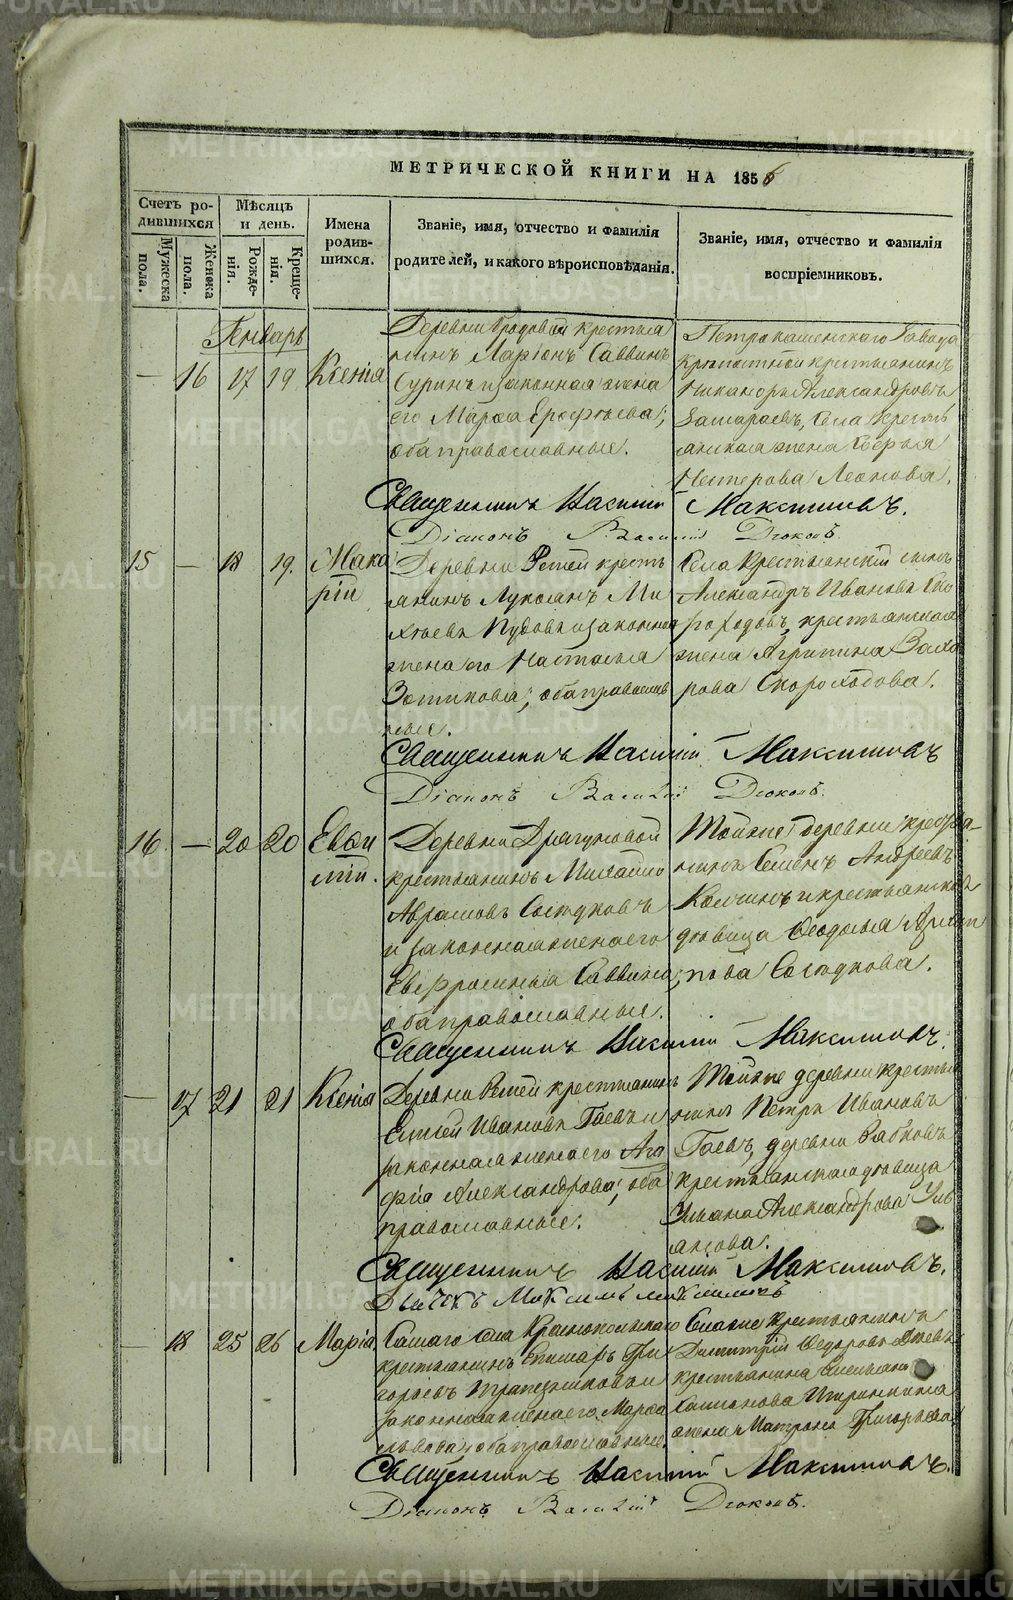 МЕТРИЧЕСКОЙ КНИГИ НА 1856
Счетъ родившихся
Мужеска пола.
Женска пола.
Мѣсяцъ и день.
Рожденія.
Крещенія.
Имена родившихся.
Званіе, имя, отчество и фамилія родителей, и какого вѣроисповѣданія.
Званіе, имя, отчество и фамилія воспріемниковъ.
Генварь
— 16 17 19 Ксенія
Деревни Бродовой крестья
нинъ Ларіонъ Саввинъ
Суринъ и законная жена
его Марѳа Ерофѣева;
оба православные.
Петрокаменскаго Завода
крѣпостной крестьянинъ
Никаноръ Александровъ
села
жена Софья
Нестерова Леонова.
Священникъ Василій Максимовъ.
Діаконъ Василій
15 — 18 19. Мака
рій
Деревни Ретей кресть
янинъ Лукоянъ Ми
хѣевъ Пудовъ и законная
жена его Настасья
Зотикова; оба православ
ные.
Села крестьянскій сынъ
Александръ Ивановъ Ско
роходовъ, крестьянская
жена Агрипина Заха
рова Скороходова.
Священникъ Василій Максимовъ
Діаконъ Василій
16 — 20 20 Евѳи
мій.
Деревни Драгуновой
крестьянинъ Михаило
Абрамовъ Состуковъ
и законная жена его
Евфросинья Саввина;
оба православные.
Тойже деревни крестья-
нинъ Семенъ Андреевъ
Колчинъ и крестьянская
дѣвица Ѳеодосья Архип
пова
Священникъ Василій Максимовъ.
— 17 21 21 Ксенія
Деревни Ретей крестьянинъ
Елисей Ивановъ Гаевъ и
законная жена его Ага
фія Александрова; оба
православные.
Тойже деревни крестья
нинъ Петръ Ивановъ
Гаевъ, деревни Рябковъ
крестьянская дѣвица
Ульяна Александрова Уль
янова.
Священникъ Василій Максимовъ.
Дьячекъ Максимъ
— 18 25 26 Марія
Самаго села Краснопольскаго
крестьянинъ Епимахъ Гри
горьевъ Трапезниковъ и
законная жена его Марѳа
Львова; оба православные.
крестьянинъ
Димитрій Ѳедоровъ
крестьянина Емельяна
жена Матрона Григорьева.
Священникъ Василій Максимовъ.
Діаконъ Василій
METRIKI.GASO-URAL.RU